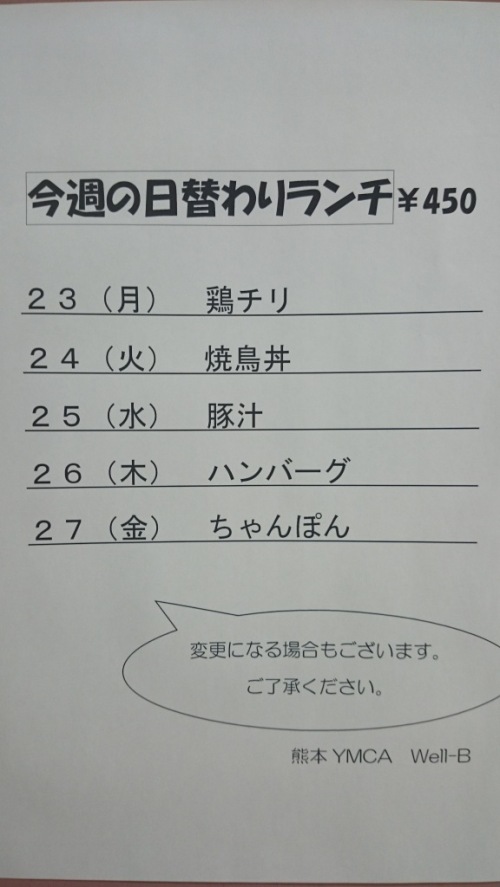 今週の日替わりランチ￥450
２３（月） 鶏チリ
２４（火） 焼鳥丼
２５（水） 豚汁
２６（木） ハンバーグ
２７（金） ちゃんぽん
変更になる場合もございます。
ご了承ください。
熊本YMCA Well-B